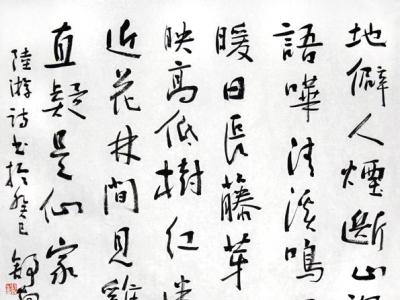 地僻人煙斷山
語嘩清溪鳴
暖日長藤芽
映高低樹紅
近花林間見雞
直疑是仙家
陸游詩書於癸巳 舒